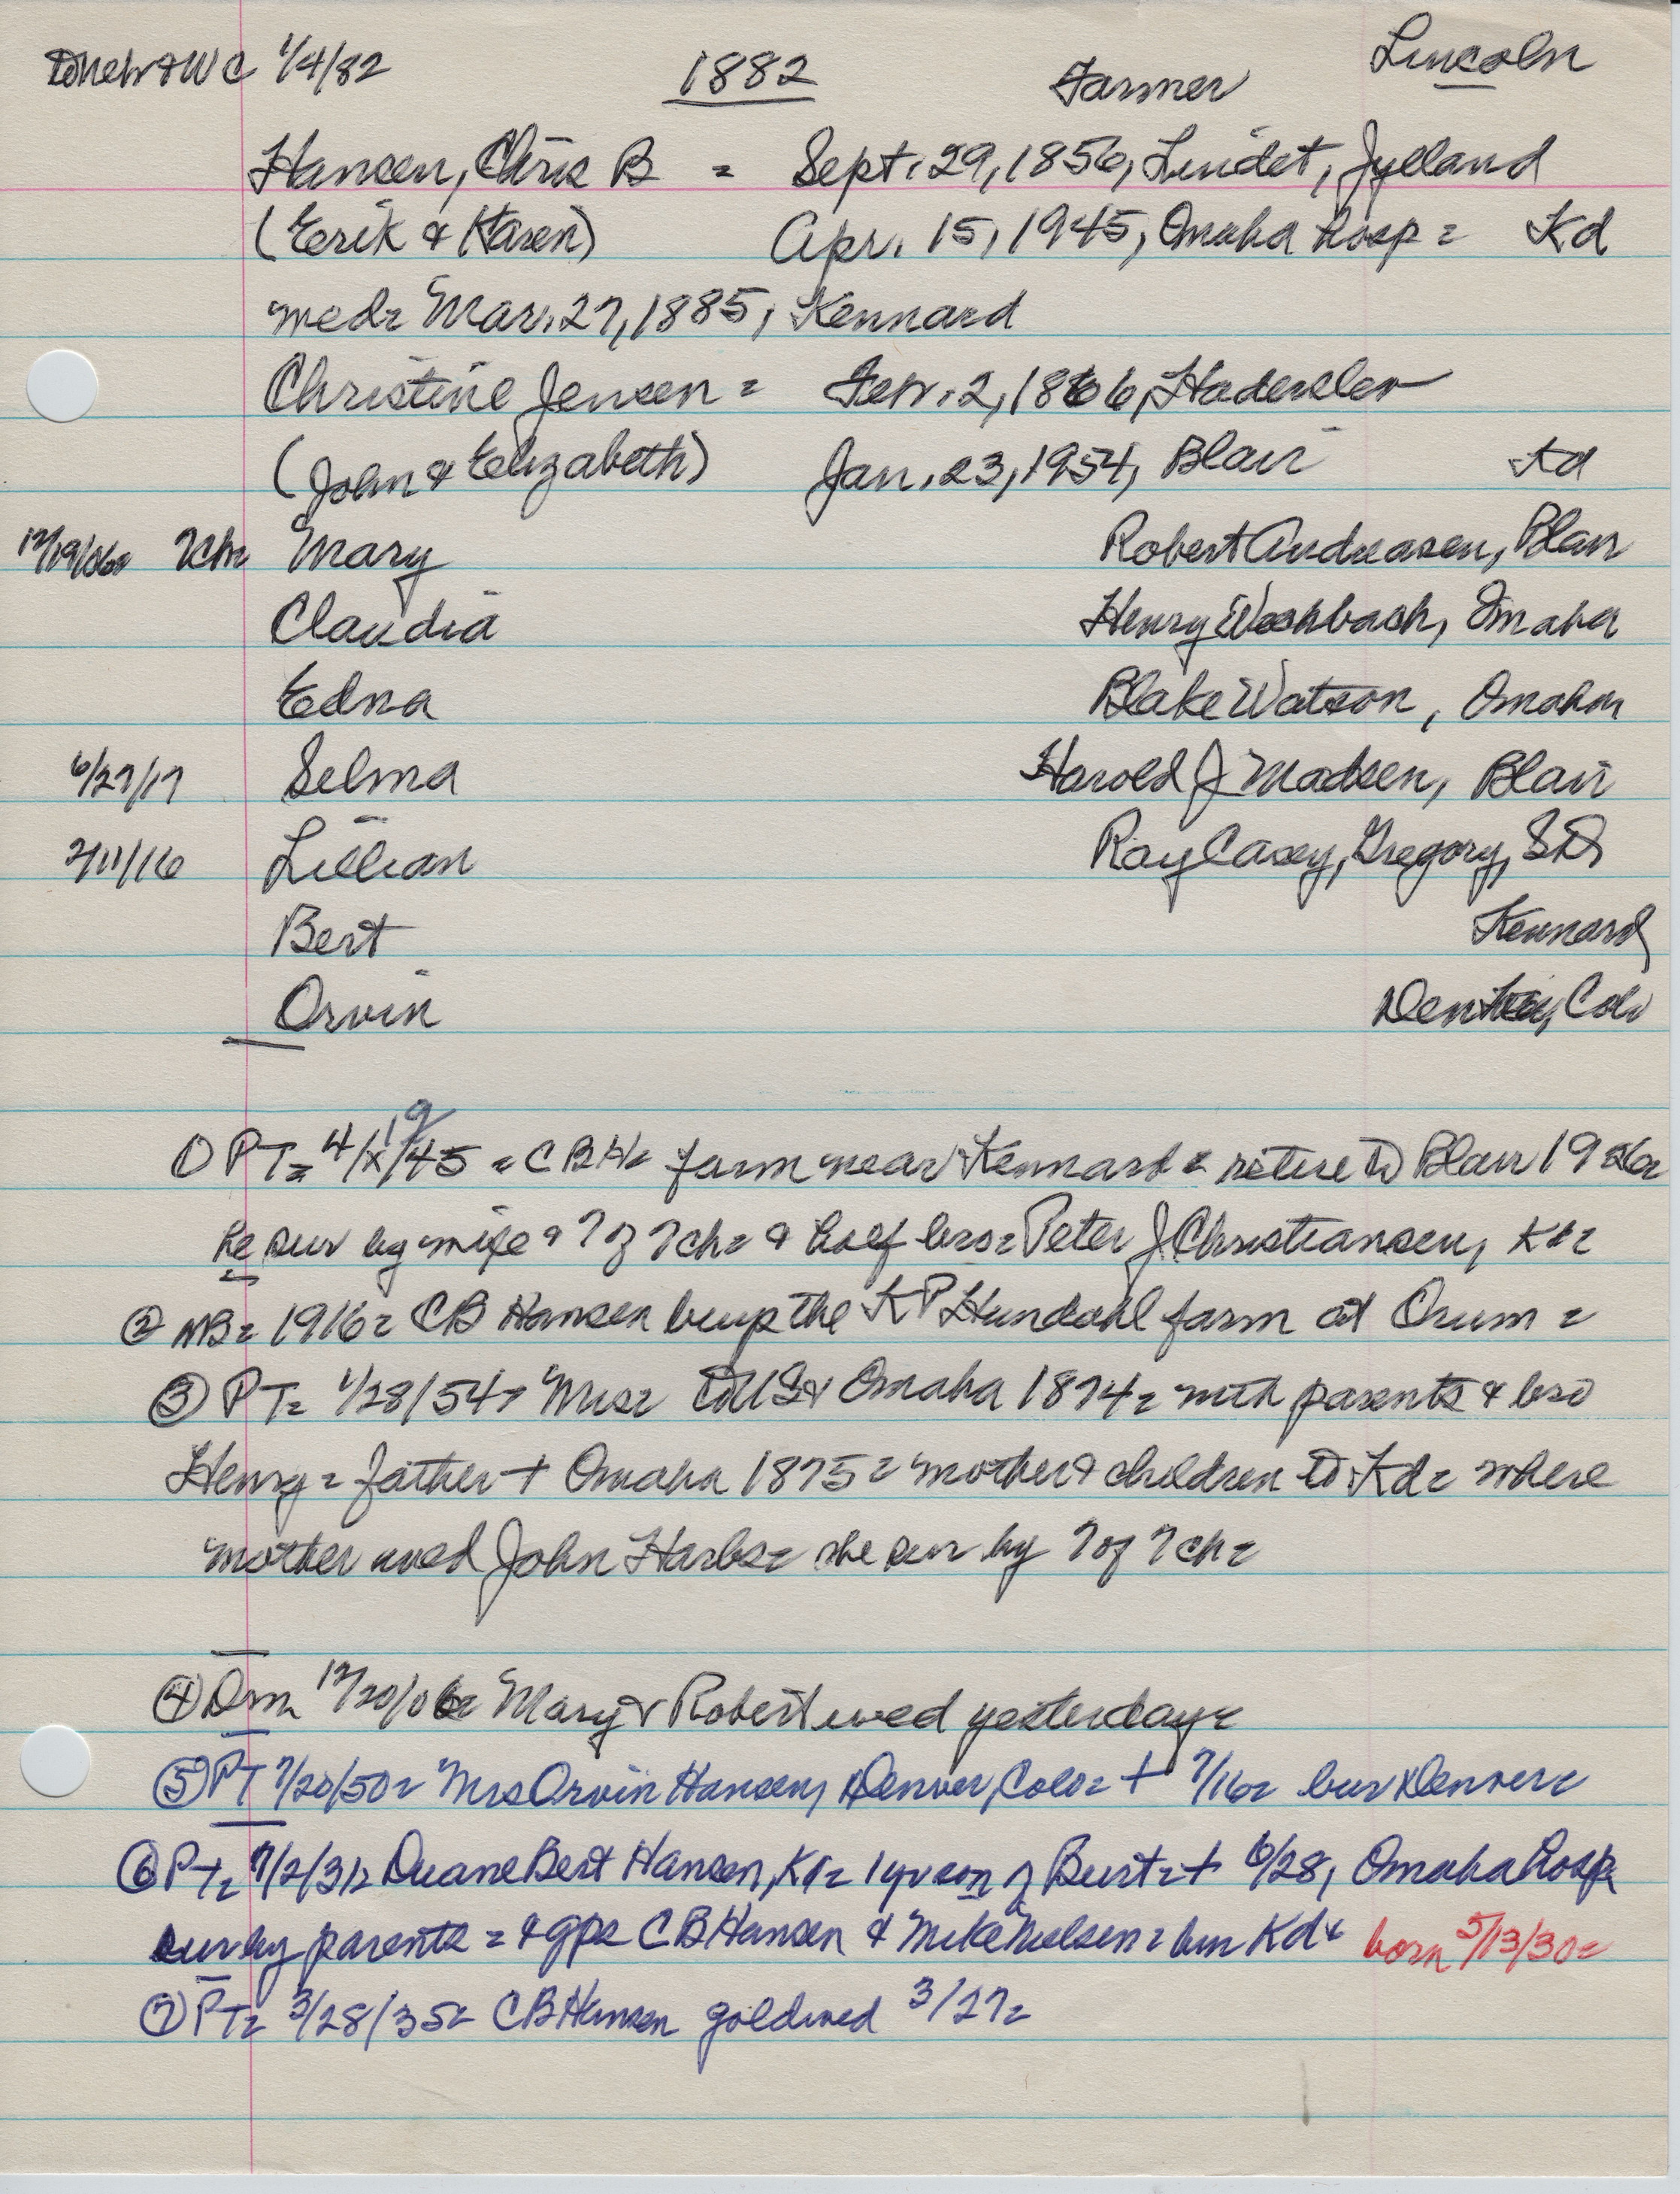 to Nebr & WC 1/4/82 1882 Farmer Lincoln
Hansen, Chris B = Sept. 29, 1856, Lindet, Jylland
(Erik & Karen) Apr. 15, 1945, Omaha Hosp = Kd
wed = Mar. 27, 1885, Kennard
Christine Jensen = Febr. 2, 1866, Haderslev
(John & Elizabeth) Jan. 23, 1954, Blair Kd
12/19/06= 7ch= Mary Robert Andreasen, Blair
Claudia Henry, Omaha
Edna Blake Watson, Omaha
6/27/17 Selma Harold J Madsen, Blair
2/11/16 Lillian Ray Casey, Gregory, SD
Bert Kennard
Orvin Denver, Colo
① PT= 4/19/45 = CBH= farm near Kennard = retire to Blair
he sur by wife & 7 of 7ch= & half bro= Peter J Christiansen, Kd=
② = 1916= CB Hansen buys the KP Hundahl farm at Orum =
③ PT= 1/28/54= Mrs= to US& Omaha 1874= with parents & bro
Henry = father + Omaha 1875 = mother & children to Kd= where
mother wed John Harbs= she sur by 7 of 7ch=
④ Dm 12/20/06= Mary & Robert wed yesterday=
⑤ PT 7/20/50= Mrs Orvin Hansen, Denver, Colo= + 7/16= bur Denver=
⑥ PT= 7/2/31= Duane Bert Hansen, Kd= 1 yr son of Burt= + 6/28, Omaha Hosp
sur by parents = & gps CB Hansen & Mike Nielsen = bur Kd& born 5/13/30=
⑦ PT= 3/28/35= CB Hansen goldwed 3/27=